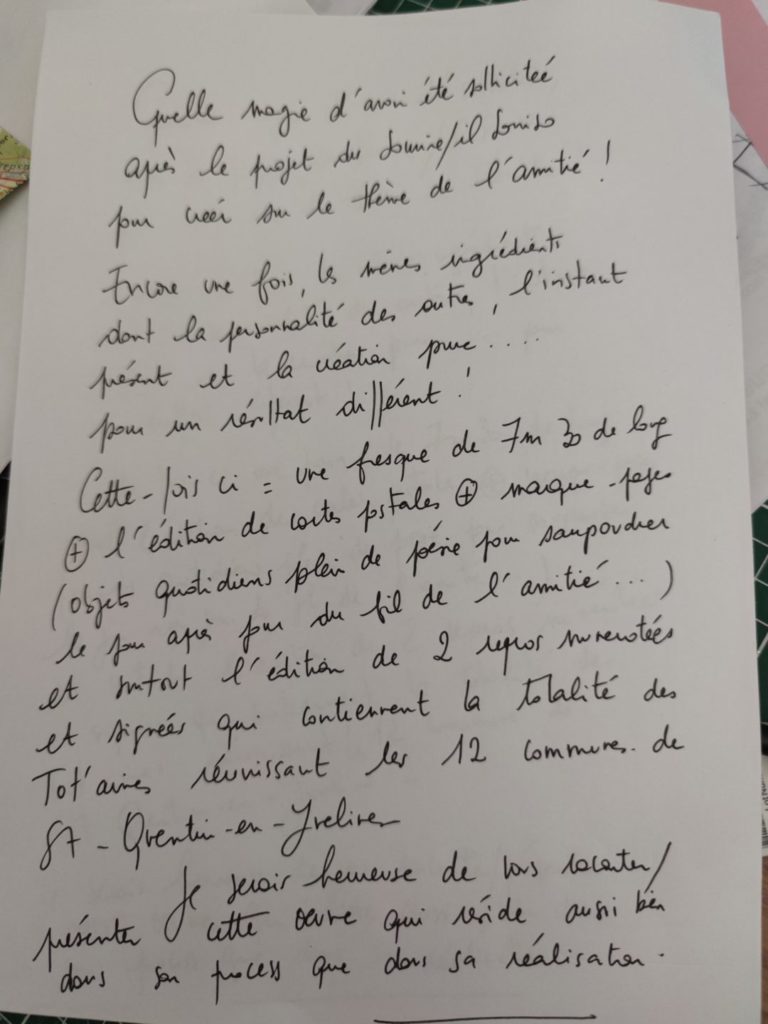 Quelle magie d'avoir été sollicitée
après le projet du sourire/il sorriso
pour créer sur le thème de l'amitié !
Encore une fois, les mêmes ingrédients
dont la personnalité des autres, l'instant
présent et la création pure ....
pour un résultat différent !
Cette-fois ci = une fresque de 7m 30 de long
⊕ l'édition de cartes postales ⊕ marque-pages
(objets quotidiens plein de poésie pour saupoudrer
le jour après jour du fil de l'amitié...)
et surtout l'édition de 2 repros numérotées
et signées qui contiennent la totalité des
Tot'aimes réunissant les 12 communes de
St-Quentin-en-Yvelines
Je serais heureuse de vous raconter/
présenter cette oeuvre qui réside aussi bien
dans son process que dans sa réalisation.